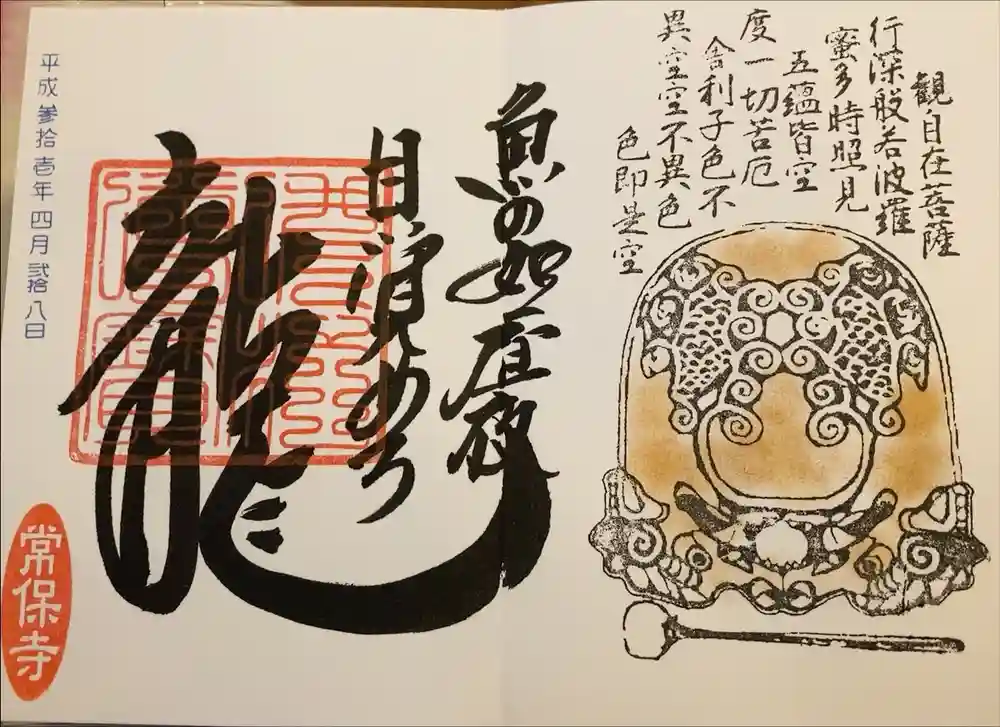 観自在菩薩
行深般若波羅
蜜多時照見
五蘊皆空
度一切苦厄
舎利子色不
異空空不異色
色即是空
魚の如昼夜
目
龍
平成参拾壱年四月弐拾八日
常保寺